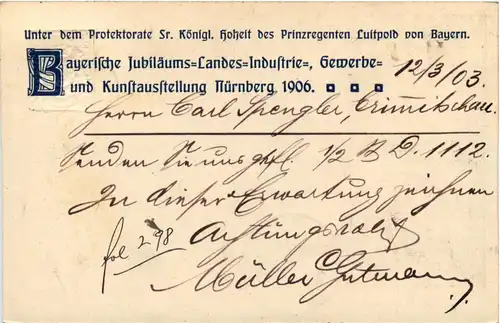 Unter dem Protektorate Sr. Königl. Hoheit des Prinzregenten Luitpold von Bayern.
Bayerische Jubiläums=Landes=Industrie=, Gewerbe=
und Kunstausstellung Nürnberg 1906.
12/3/03.
Herrn Carl Spengler, Crimitschau
Senden Sie uns gefl. 1/2 D. 1112.
In dieser Erwartung zeichnen
Achtungsvoll
fol 298
Müller Gutmann